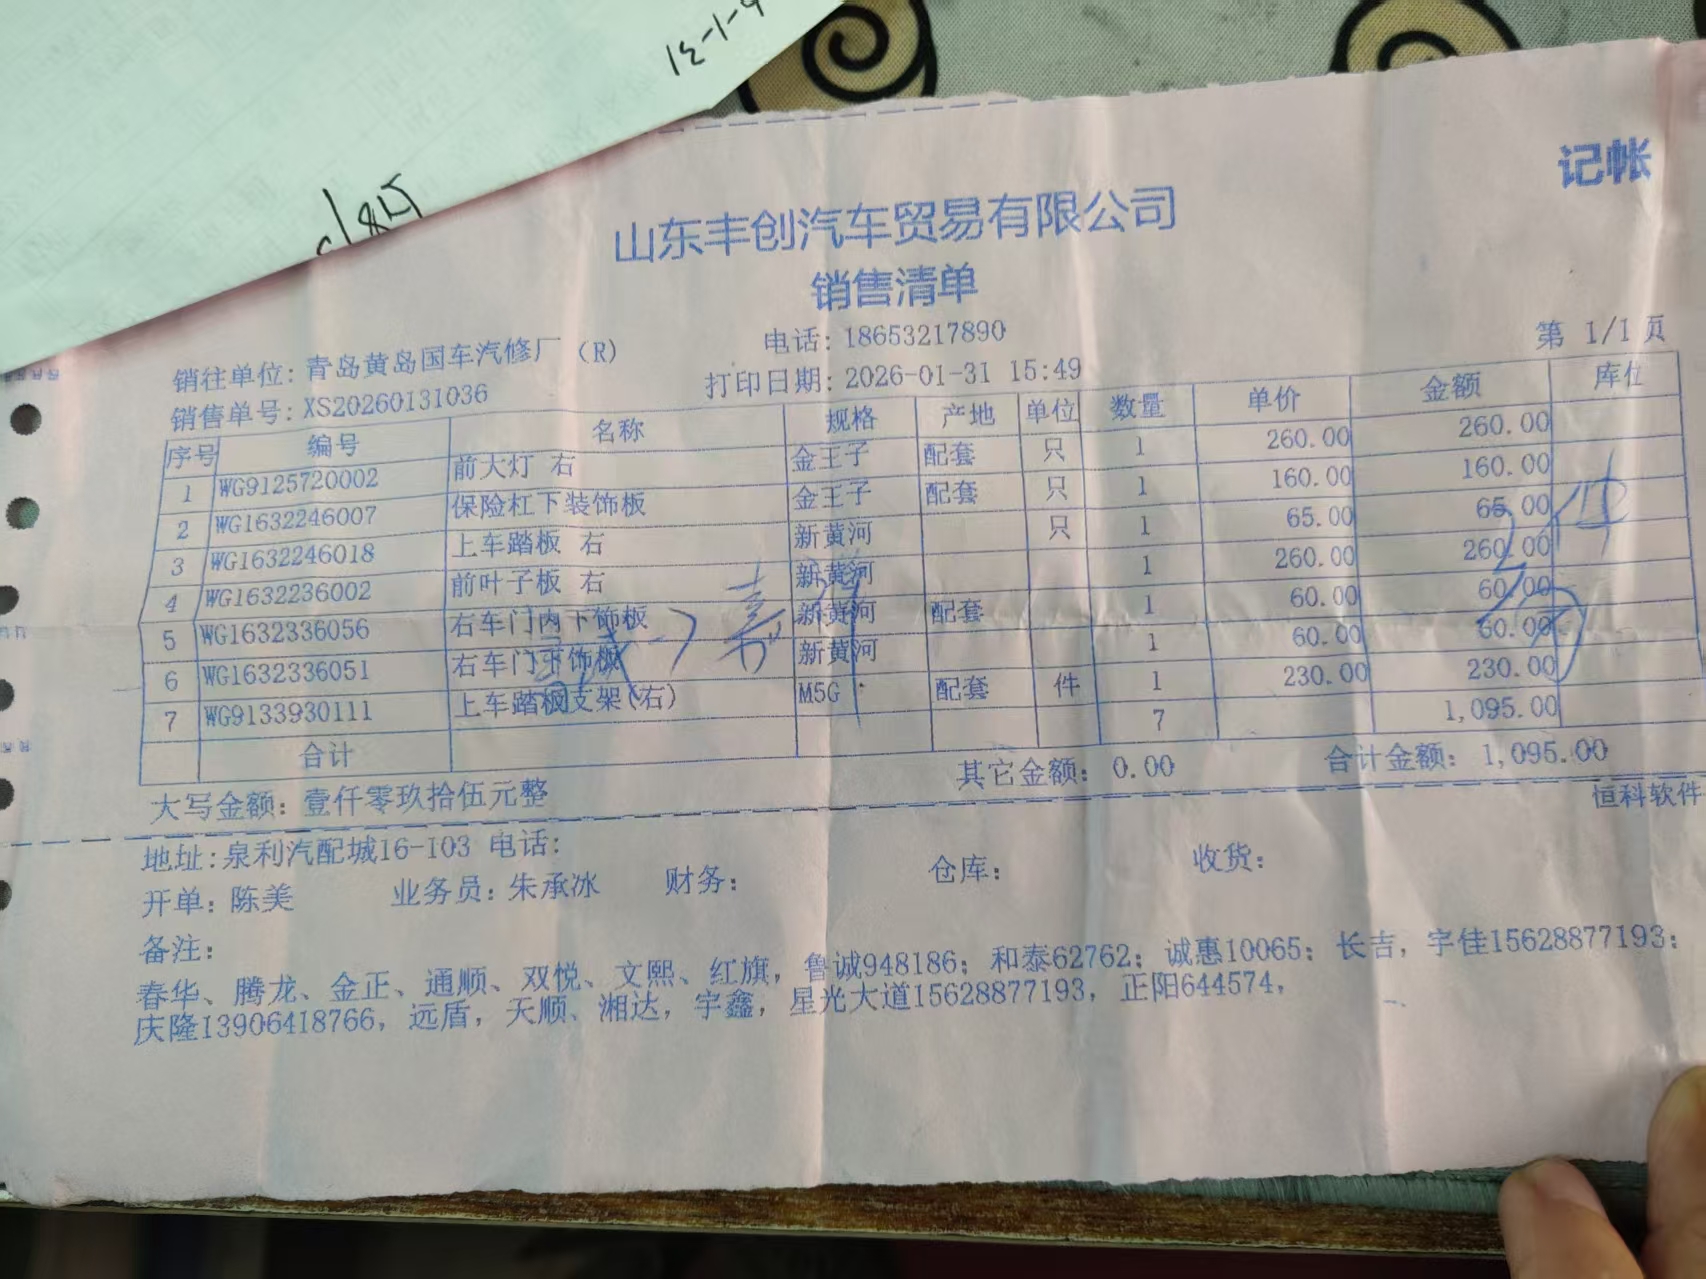 记帐
山东丰创汽车贸易有限公司
销售清单
销往单位：青岛黄岛国车汽修厂（R） 电话：18653217890 第 1/1 页
销售单号：XS20260131036 打印日期：2026-01-31 15:49
序号 编号 名称 规格 产地 单位 数量 单价 金额 库位
1 WG9125720002 前大灯 右 金王子 配套 只 1 260.00 260.00
2 WG1632246007 保险杠下装饰板 金王子 配套 只 1 160.00 160.00
3 WG1632246018 上车踏板 右 新黄河 只 1 65.00 65.00
4 WG1632236002 前叶子板 右 新黄河 1 260.00 260.00
5 WG1632336056 右车门内下饰板 新黄河 配套 1 60.00 60.00
6 WG1632336051 右车门下饰板 新黄河 1 60.00 60.00
7 WG9133930111 上车踏板支架(右) M5G 配套 件 1 230.00 230.00
合计 7 1,095.00
大写金额：壹仟零玖拾伍元整 其它金额：0.00 合计金额：1,095.00
恒科软件
地址：泉利汽配城16-103 电话：
开单：陈美 业务员：朱承冰 财务： 仓库： 收货：
备注：
春华、腾龙、金正、通顺、双悦、文熙、红旗，鲁诚948186；和泰62762；诚惠10065；长吉，宇佳15628877193；
庆隆13906418766，远盾，天顺、湘达，宇鑫，星光大道15628877193，正阳644574，